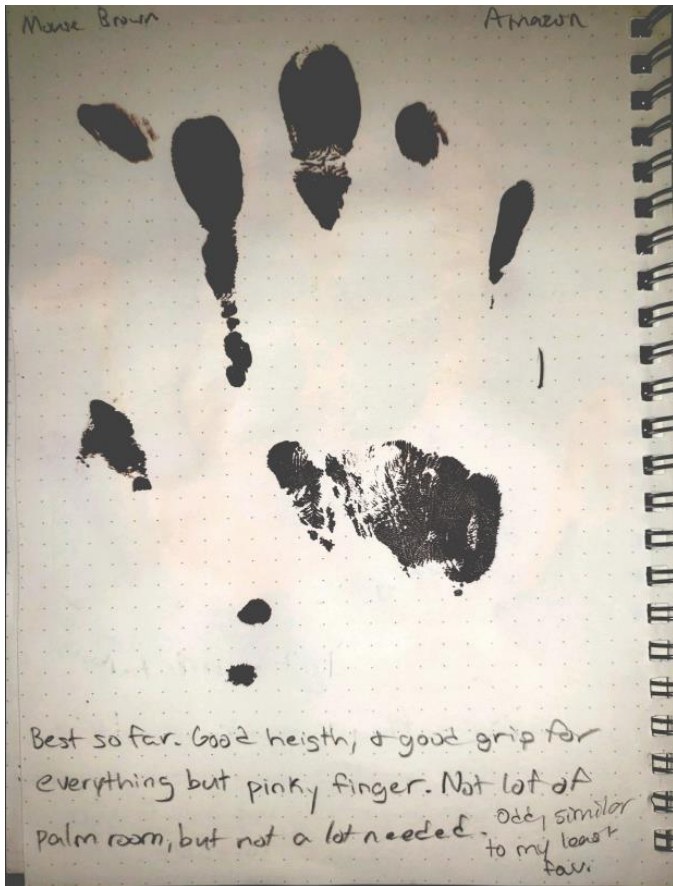 Mouse Brown
Amazon
Best so far. Good heigth, & good grip for
everything but pinky finger. Not lot of
palm room, but not a lot needed.
Odd, similar
to my least
fav.